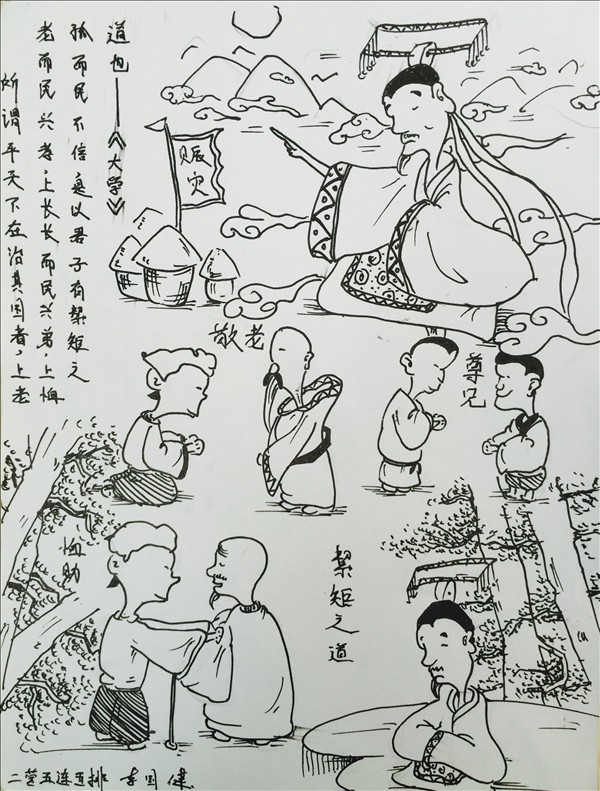 所谓平天下在治其国者，上老
老而民兴孝，上长长而民兴弟，上恤
孤而民不倍，是以君子有絜矩之
道也——《大学》
赈灾
敬老
尊兄
恤助
絜矩之道
二营五连五排 李国健